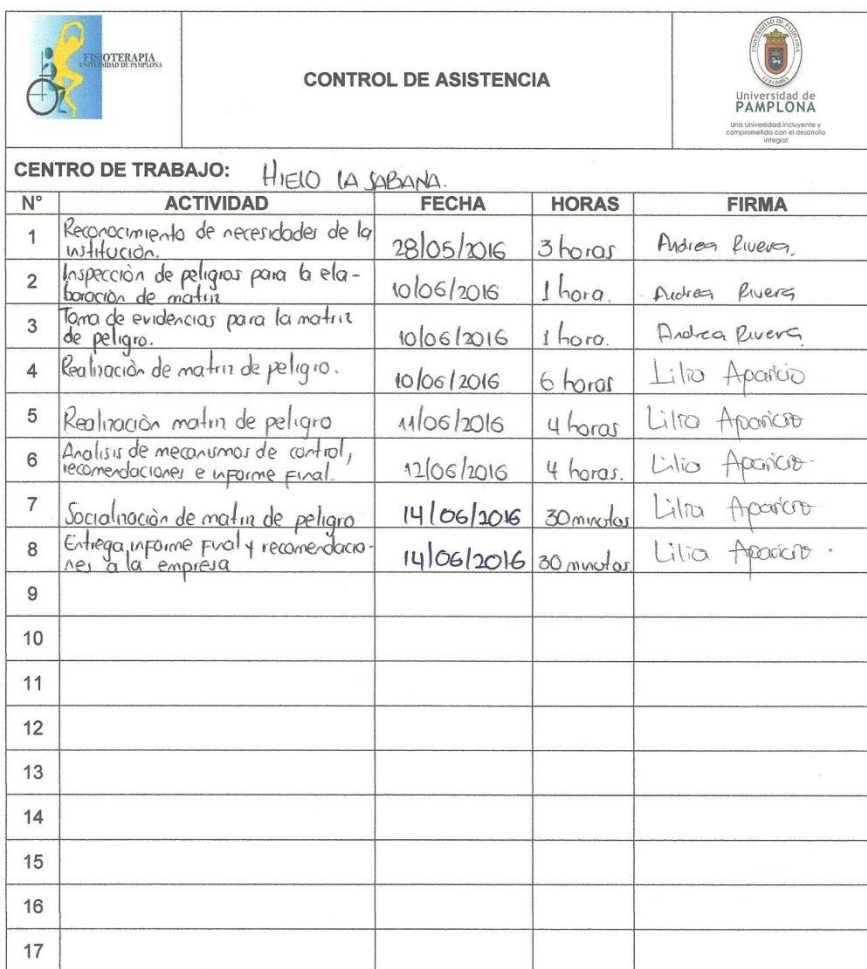 FISIOTERAPIA
UNIVERSIDAD DE PAMPLONA
CONTROL DE ASISTENCIA
UNIVERSIDAD DE PAMPLONA
COLOMBIA
Universidad de
PAMPLONA
Una Universidad incluyente y
comprometida con el desarrollo
integral
CENTRO DE TRABAJO: HIELO LA SABANA.
N° ACTIVIDAD FECHA HORAS FIRMA
1 Reconocimiento de necesidades de la
institución. 28/05/2016 3 horas Andrea Rivera.
2 Inspección de peligros para la ela-
boración de matriz 10/06/2016 1 hora. Andrea Rivera
3 Toma de evidencias para la matriz
de peligro. 10/06/2016 1 hora. Andrea Rivera
4 Realización de matriz de peligro. 10/06/2016 6 horas Lilia Aparicio
5 Realización matriz de peligro 11/06/2016 4 horas Lilia Aparicio
6 Analisis de mecanismos de control,
recomendaciones e informe final. 12/06/2016 4 horas. Lilia Aparicio
7 Socialización de matriz de peligro 14/06/2016 30 minutos Lilia Aparicio
8 Entrega informe final y recomendacio-
nes a la empresa 14/06/2016 30 minutos Lilia Aparicio.
9
10
11
12
13
14
15
16
17